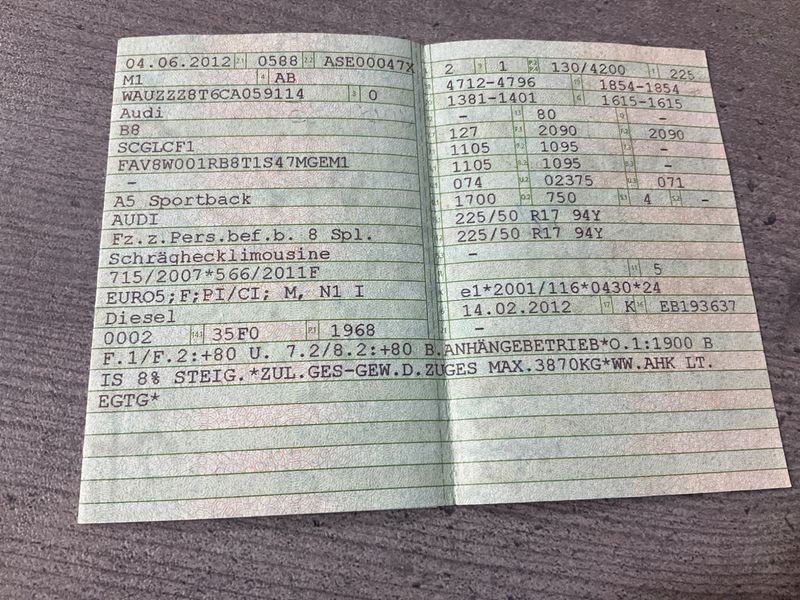 04.06.2012 2.1 0588 2.2 ASE00047X
M1 4 AB
WAUZZZ8T6CA059114 3 0
Audi
B8
SCGLCF1
FAV8W001RB8T1S47MGEM1
-
A5 Sportback
AUDI
Fz.z.Pers.bef.b. 8 Spl.
Schräghecklimousine
715/2007*566/2011F
EURO5;F;PI/CI; M, N1 I
Diesel
0002 14.1 35F0 P.1 1968
2 9 1 130/4200 T 225
4712-4796 1854-1854
1381-1401 G 1615-1615
- 80 -
127 2090 2090
1105 1095 -
1105 1095 -
074 U.2 02375 U.3 071
1700 O.2 750 S.1 4 S.2 -
225/50 R17 94Y
225/50 R17 94Y
-
11 5
e1*2001/116*0430*24
14.02.2012 17 K 16 EB193637
-
F.1/F.2:+80 U. 7.2/8.2:+80 B.ANHÄNGEBETRIEB*O.1:1900 B
IS 8% STEIG.*ZUL.GES-GEW.D.ZUGES MAX.3870KG*WW.AHK LT.
EGTG*